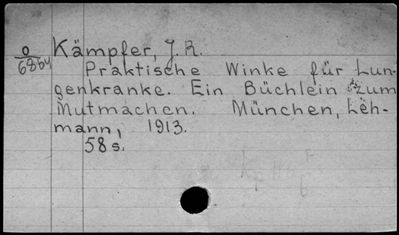 O
6864
Kämpfer, J. R.
Praktische Winke für Lun-
genkranke. Ein Büchlein zum
Mutmachen. München, Leh-
mann, 1913.
58 s.